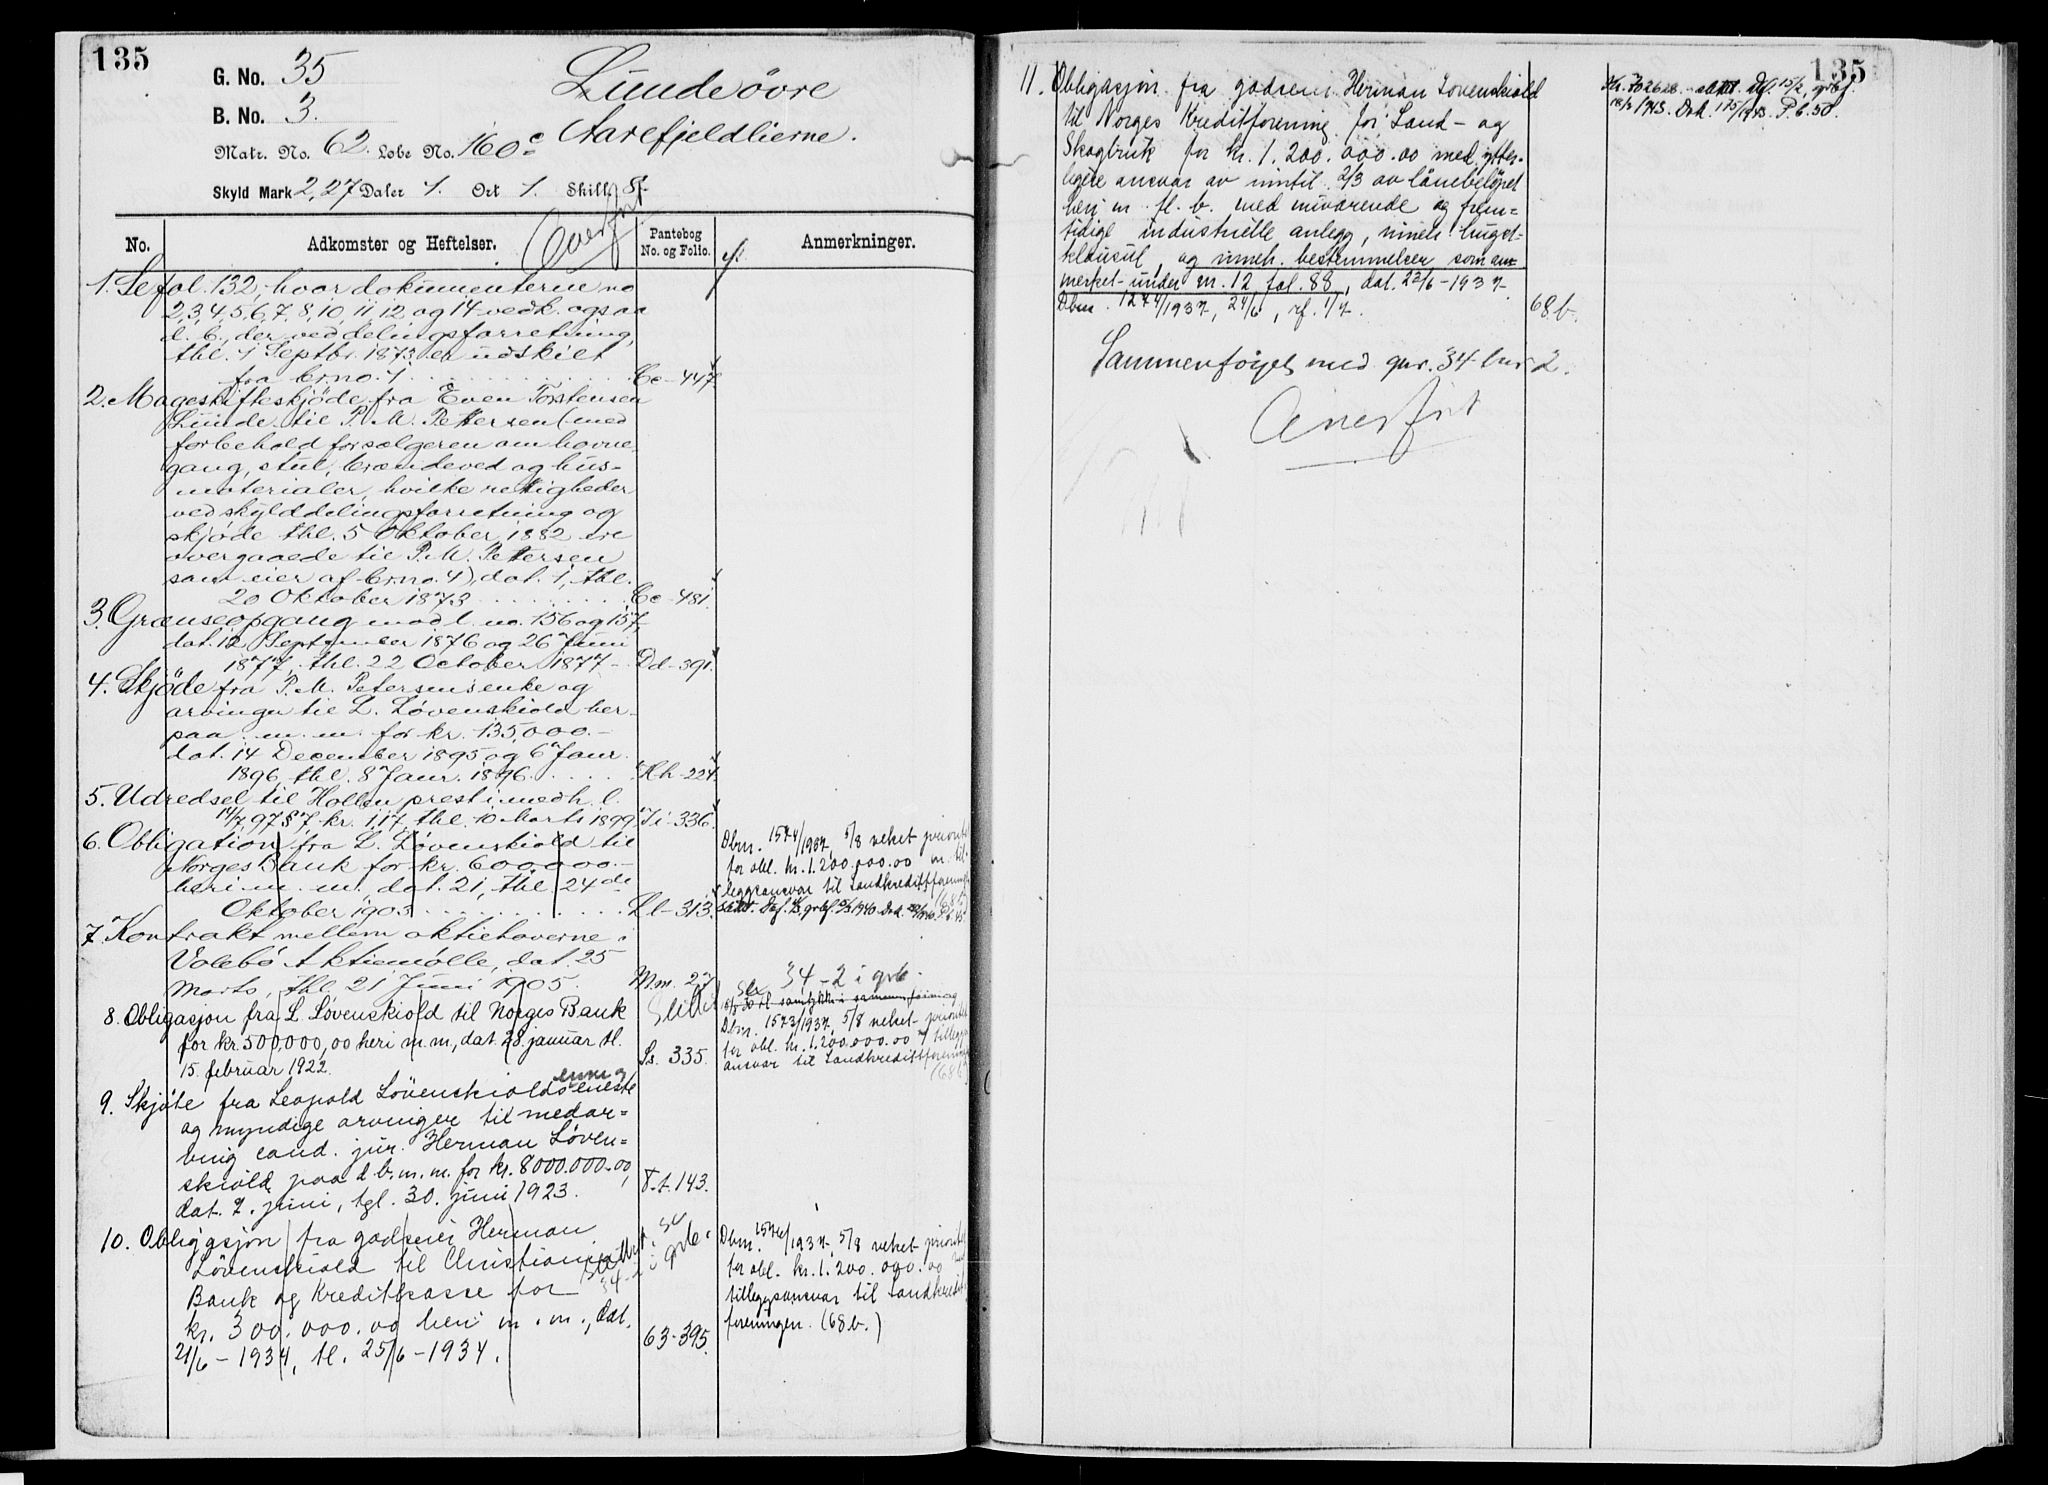 135
G. No. 35
B. No. 3.
Matr. No. 62. Løbe No. 160c
Skyld Mark 2,27 Daler 1. Ort 1. Skill. 8.
Lunde övre
Aarefjeldlierne.
Overført
No.
Adkomster og Heftelser.
Pantebog
No. og Folio.
Anmerkninger.
1. Se fol. 132, hvor dokumenterne no
2, 3, 4, 5, 6, 7, 8, 10, 11, 12 og 14 vedk. ogsaa
d. b., der ved delingsforretning,
thl. 1 Septbr. 1873 er udskilt
fra br.no. 1 Cc-447
2. Mageskifteskjöde fra Even Torstensen
Lunde til P. M. Petersen (med
forbehold for sælgeren om havne-
gang, stul, brændeved og hus-
materialer, hvilke rettigheder
ved skylddelingsforretning og
skjöde thl. 5 Oktober 1882 ere
overgaaede til P. M. Petersen
som eier af br.no. 4), dat. 1, thl.
20 Oktober 1873 Cc-481.
3. Grænseopgang mod l. no. 156 og 157,
dat. 12 September 1876 og 26 Juni
1877, thl. 22 October 1877 - Dd-391.
4. Skjöde fra P. M. Petersens enke og
arvinger til L. Lövenskiold her-
paa m. m. for kr. 135,000.-
dat. 14 December 1895 og 6 Janr.
1896, thl. 8 Janr. 1896. Hh-224.
5. Udredsel til Hollen prest i medh. l.
14/7 97 § 7, kr. 1,17, thl. 10 Marts 1899 Ii-336.
6. Obligation fra L. Lövenskiold til
Norges Bank for kr. 600,000.-
heri m. m., dat. 21, thl. 24de
Oktober 1903 Ll-313.
Dbm. 1574/1937, 5/8 veket prioritet
for obl. kr. 1.200.000.00 m. til-
leggsansvar til Landkreditforeningen
(68b)
7. Kontrakt mellem aktiehaverne i
Valebö Aktiemölle, dat. 25
Marts, thl. 21 Juni 1905. Mm. 27
34-2 i grb.
8. Obligasjon fra L Lövenskiold til Norges Bank
for kr. 500,000,00 heri m.m., dat 28. januar tl.
15. februar 1922. Ss. 335.
Slettet
Dbm. 1573/1937, 5/8 veket prioritet
for obl. kr. 1.200.000.00 m tilleggs
ansvar til Landkreditforeningen
(68b)
9. Skjöte fra Leopold Lövenskiolds eneste
og myndige arvinger til medar=
ving cand. jur. Herman Löven=
skiold paa d b. m. m. for kr. 8000.000.00,
dat. 2. juni, tgl. 30. juni 1923. T.t. 143.
10. Obligasjon fra godseier Herman
Lövenskiold til Christiania
Bank og Kreditkasse for
kr. 300.000.00 heri m. m., dat.
21/6 - 1934, tl. 25/6 - 1934. 63-395.
Dbm. 1576/1937, 5/8 veket prioritet
for obl. kr. 1.200.000.00 med
tilleggsansvar til Landkredit
foreningen. (68b.)
135
11. Obligasjon fra godseier Herman Lövenskiold
til Norges Kreditforening for Land- og
Skogbruk for kr. 1.200.000.00 med ytter-
ligere ansvar av inntil 2/3 av lånebelöpet
heri m. fl. b. med nuværende og frem=
tidige industrielle anlegg, inneh. hugst-
klausul, og inneh. bestemmelser som an=
merket under nr. 12 fol. 88, dat. 23/6 - 1937.
Dbm. 1244/1937, 24/6, rf. 1/7. 68b.
Sammenföyet med gnr. 34 bnr 2.
Overført